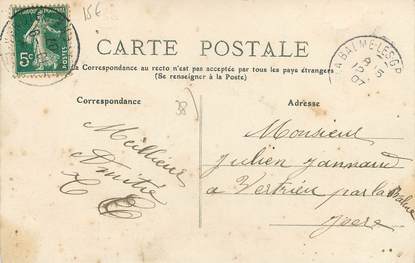 15€
5c
LA BALME-LES-GR
9 - 5
12
07
CARTE POSTALE
La Correspondance au recto n'est pas acceptée par tous les pays étrangers
(Se renseigner à la Poste)
Correspondance
38
Adresse
Meilleure
Amitié
Monsieur
Julien Jannand
a Vertrieu par la Balme
Isere